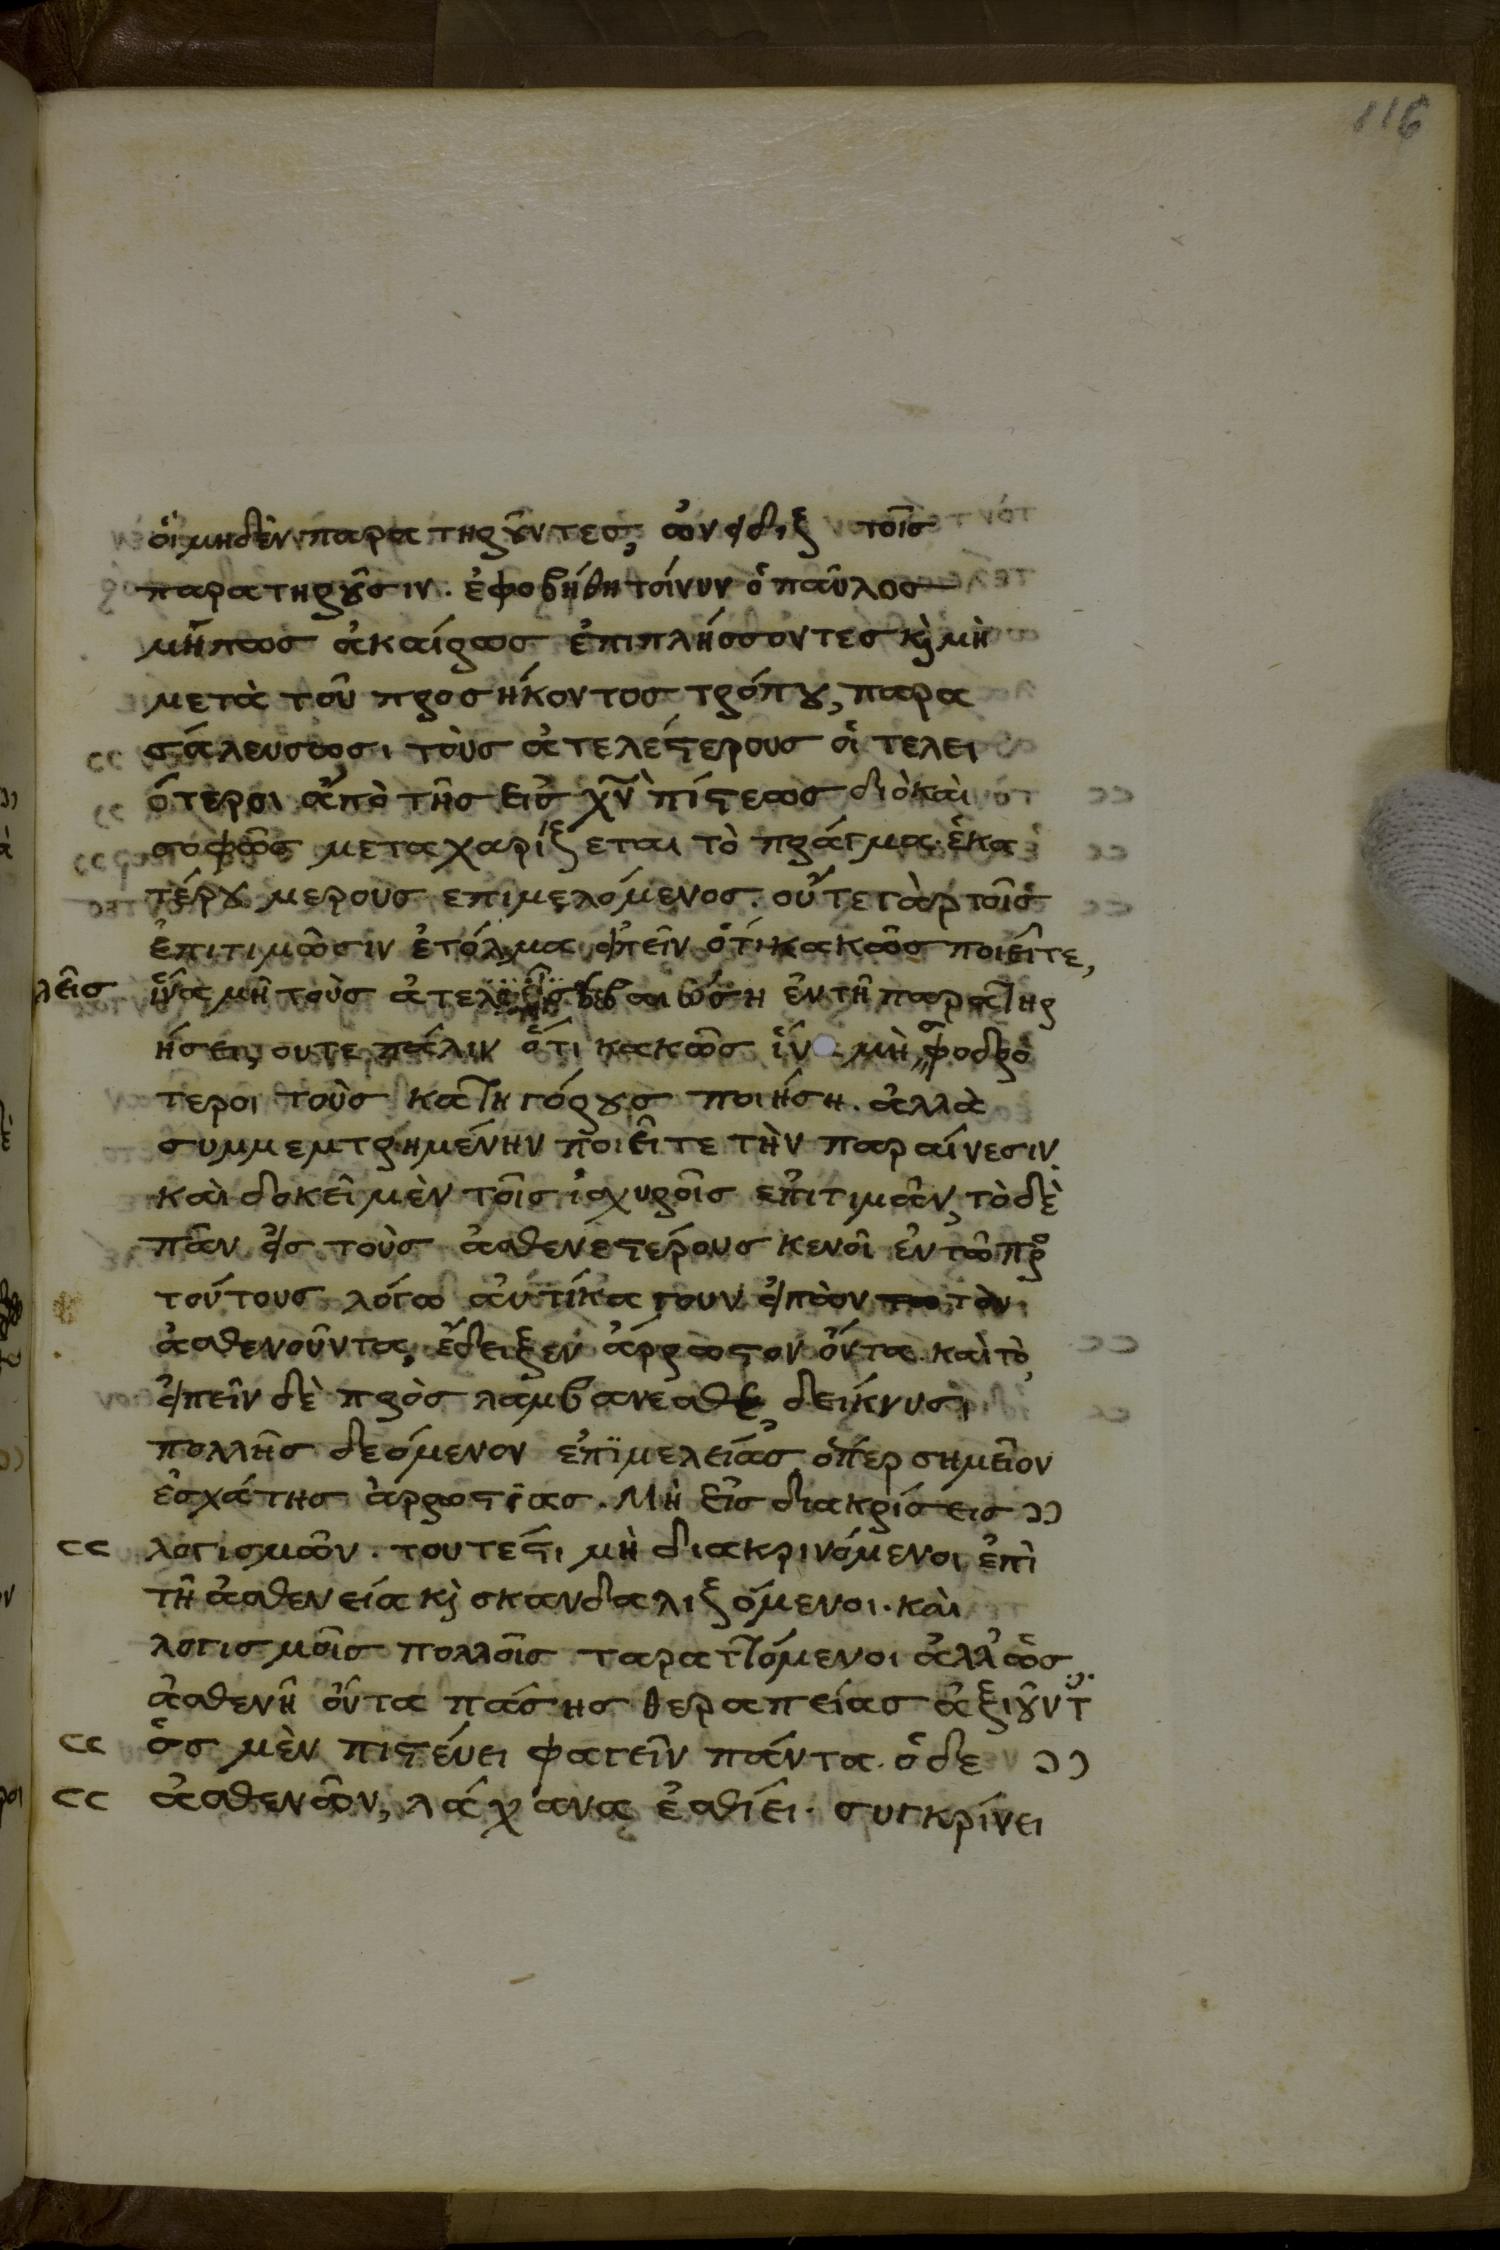 116
οἱ μηδὲν παρατηροῦντες, ὠνείδιζ τοῖς
παρατηροῦσιν. ἐφοβήθη τοίνυν ὁ παῦλος
μήπως ἀκαίρως ἐπιπλήσσοντες κ̀ μὴ
μετὰ τοῦ προσήκοντος τρόπου, παρα
σάλευσωσι τοὺς ἀτελέστερους οἱ τελει
ότεροι ἀπὸ τῆς εἰς χν̅ πίστεως διὸ καὶ
σοφῶς μεταχαρίζεται τὸ πράγμα. ἑκα
τέρου μερους επιμελόμενος. οὔτε γὰρ τοῖς
ἐπιτιμῶσιν ἐτόλμα εἰπεῖν ὅτι κακῶς ποιεῖτε,
λεῖς ἵνα μὴ τοὺς ἀτελ βεβαιώση ἐν τῆ παρατηρ
ήσει, ουτε πάλιν ὅτι κακῶς ἵν μὴ σφοδρό
τεροι τοὺς κατηγόρους ποιήση. ἀλλὰ
συμμεμτρημένην ποιεῖτε τὴν παραίνεσιν.
καὶ δοκεῖ μὲν τοῖς ἰσχυροῖς επιτιμᾶν, τὸ δὲ
πᾶν εἰς τοὺς ἀσθενεστέρους κενοῖ ἐν τῶ πρ
τούτους λόγω αὐτίκα γουν εἰπὼν τὸν
ἀσθενοῦντα, ἔδειξεν ἄρρωστον ὄντα. καὶ τὸ,
εἰπεῖν δὲ πρὸς λαμβανεσθε, δείκνυσι
πολλῆς δεόμενον επϊμελείας, ὅπερ σημεῖον
ἐσχάτης ἀρρωστίας. Μὴ εἰς διακρίσεις
λογισμῶν. τουτέστι μὴ διακρινόμενοι ἐπὶ
τῆ ἀσθενεία κ̀ σκανδαλιζόμενοι. καὶ
λογισμοῖς πολλοῖς ταραττόμενοι ἀλλ ὡς
ἀσθενῆ ὄντα πάσης θεραπείας ἀξιοῦντ
ὃς μὲν πιστεύει φαγεῖν πάντα. ὁ δε
ἀσθενῶν, λάχανα ἐσθίει. συγκρίνει